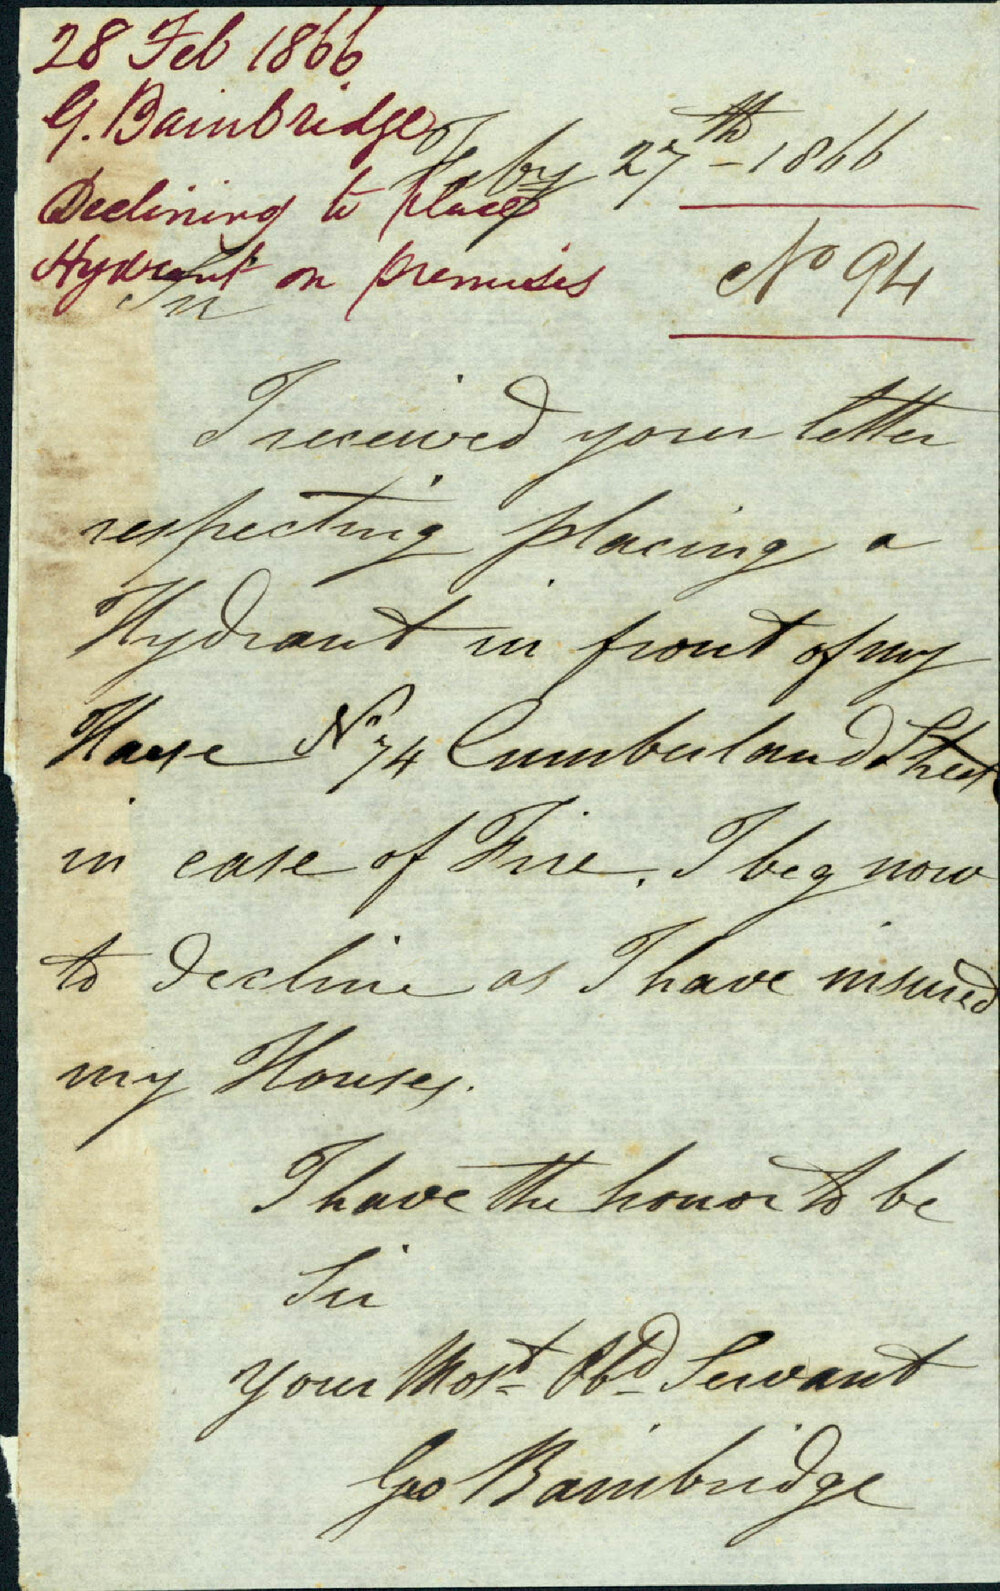 28 Feb 1866
G. Bainbridge
Declining to place
Hydrant on premises
Feby 27th - 1866
No 94
Sir
I received your letter
respecting placing a
Hydrant in front of my
House No 74 Cumberland Street
in case of Fire. I beg now
to decline as I have insured
my Houses.
I have the honor to be
Sir
your Most Obd Servant
Geo Bainbridge